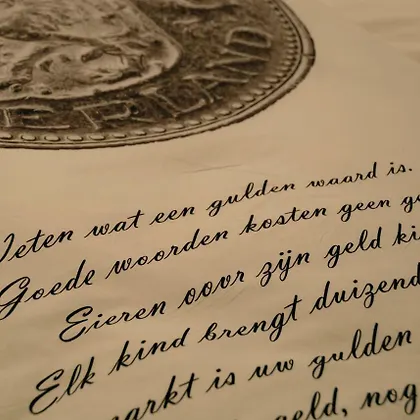 ERLAND
Weten wat een gulden waard is.
Goede woorden kosten geen
Eieren oovr zijn geld
Elk kind brengt duizend
arkt is uw gulden
geld, nog